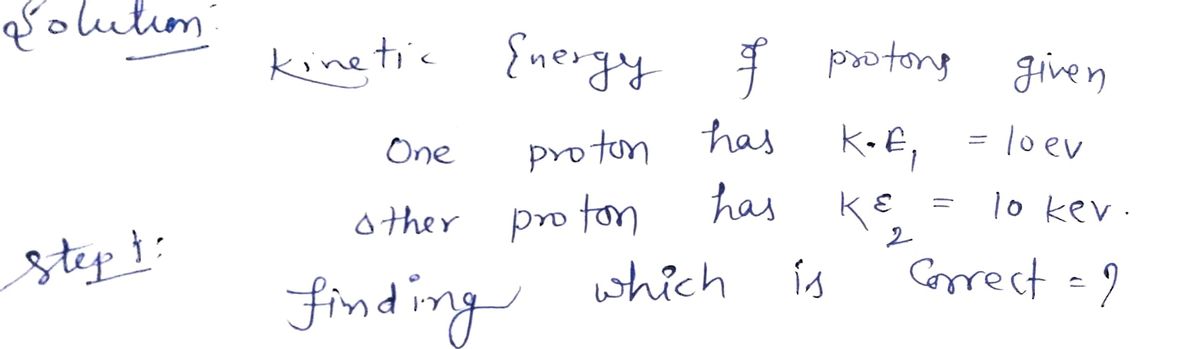 Solution:
Kinetic Energy of protons given
One proton has K.E₁ = 10 ev
other proton has KE₂ = 10 kev.
step 1:
finding which is Correct = ?